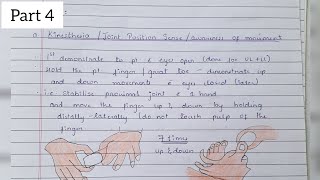 Part 4
Kinesthesia / Joint Position Sense / awareness of movement
1st demonstrate to pt c eyes open (done for UL & LL)
Hold the pt finger / great toe - demonstrate up
and down movements c eyes closed
i.e Stabilise proximal joint c 1 hand
and move the finger up & down by holding
distally - laterally (do not touch pulp of the
finger
7 times
up & down